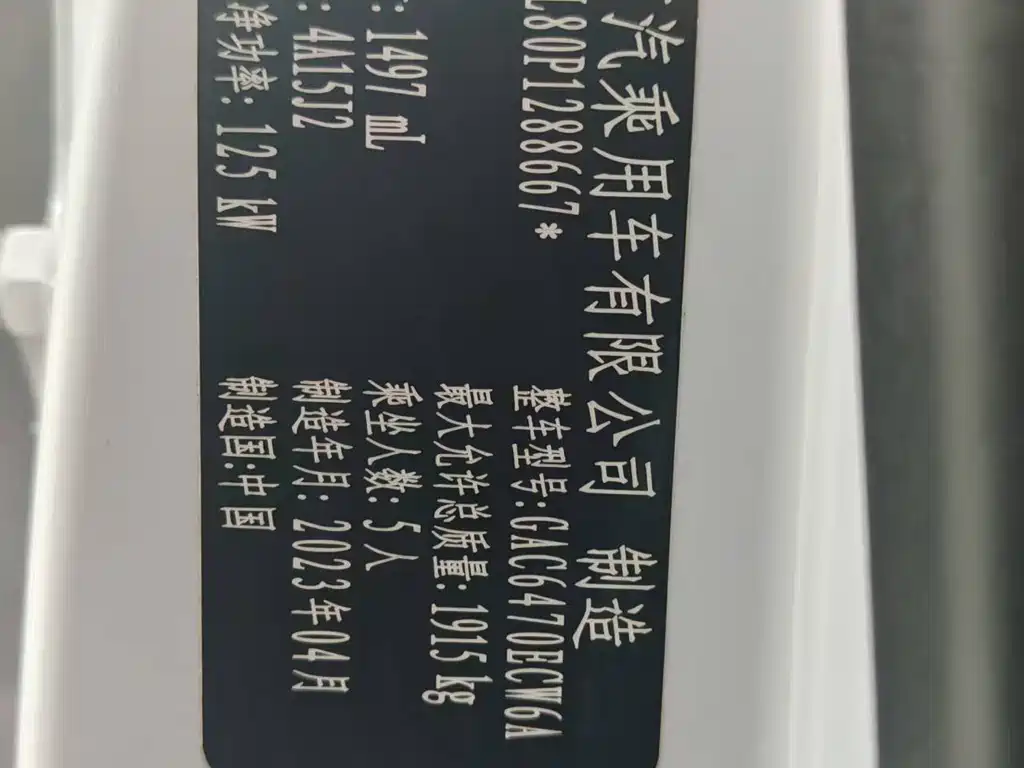 汽乘用车有限公司 制造
L80P1288667*
整车型号:GAC6470ECW6A
最大允许总质量:1915kg
: 1497 mL
乘坐人数:5人
: 4A15J2
制造年月:2023年04月
净功率: 125kW
制造国:中国